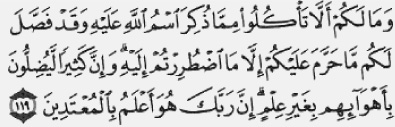 وَمَا لَكُمْ أَلَّا تَأْكُلُوا۟ مِمَّا ذُكِرَ ٱسْمُ ٱللَّهِ عَلَيْهِ وَقَدْ فَصَّلَ
لَكُم مَّا حَرَّمَ عَلَيْكُمْ إِلَّا مَا ٱضْطُرِرْتُمْ إِلَيْهِ ۗ وَإِنَّ كَثِيرًا لَّيُضِلُّونَ
بِأَهْوَآئِهِم بِغَيْرِ عِلْمٍ ۗ إِنَّ رَبَّكَ هُوَ أَعْلَمُ بِٱلْمُعْتَدِينَ ١١٩